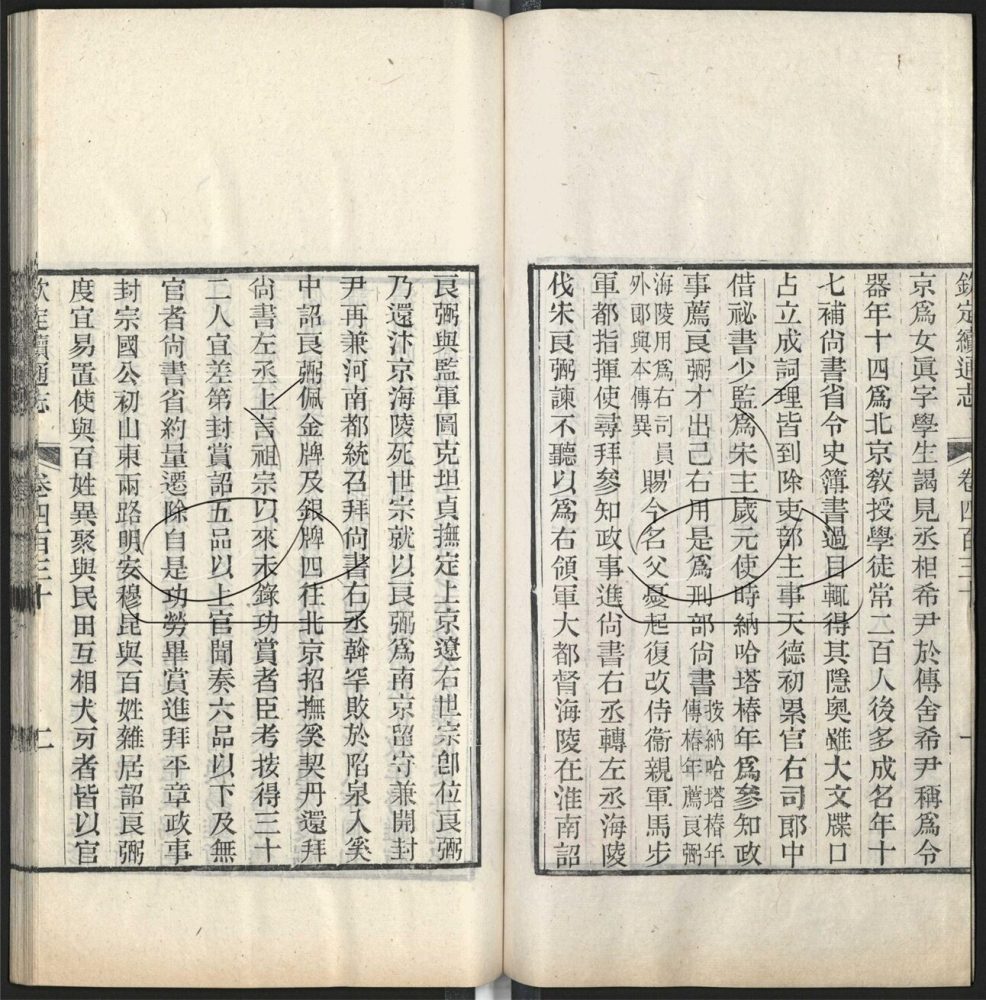 欽定續通志 卷四百三十 一
京爲女眞字學生謁見丞相希尹於傳舍希尹稱爲令
器年十四爲北京敎授學徒常二百人後多成名年十
七補尚書省令史簿書過目輒得其隱奧雖大文牒口
占立成詞理皆到除吏部主事天德初累官右司郎中
借祕書少監爲宋主歲元使時納哈塔椿年爲參知政
事薦良弼才出己右用是爲刑部尚書按納哈塔椿年傳椿年薦良弼
海陵用爲右司員外郞與本傳異賜今名父憂起復改侍衞親軍馬步
軍都指揮使尋拜參知政事進尚書右丞轉左丞海陵
伐宋良弼諫不聽以爲右領軍大都督海陵在淮南詔
良弼與監軍圖克坦貞撫定上京遼右世宗卽位良弼
乃還汴京海陵死世宗就以良弼爲南京留守兼開封
尹再兼河南都統召拜尚書右丞斡罕敗於陷泉入奚
中詔良弼佩金牌及銀牌四往北京招撫奚契丹還拜
尚書左丞上言祖宗以來未錄功賞者臣考按得三十
二人宜差第封賞詔五品以上官聞奏六品以下及無
官者尚書省約量遷除自是功勞畢賞進拜平章政事
封宗國公初山東兩路明安穆昆與百姓雜居詔良弼
度宜易置使與百姓異聚與民田互相犬牙者皆以官
欽定續通志 卷四百三十 二